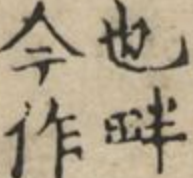 也畔
今作